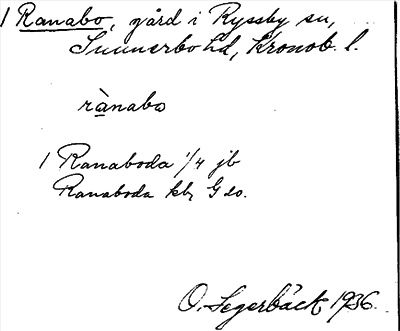 1 Ranabo, gård i Ryssby sn,
Sunnerbo hd, Kronob. l.
rànabo
1 Ranaboda 1/4 jb
Ranaboda kb, G do.
O. Segerbäck 1936.